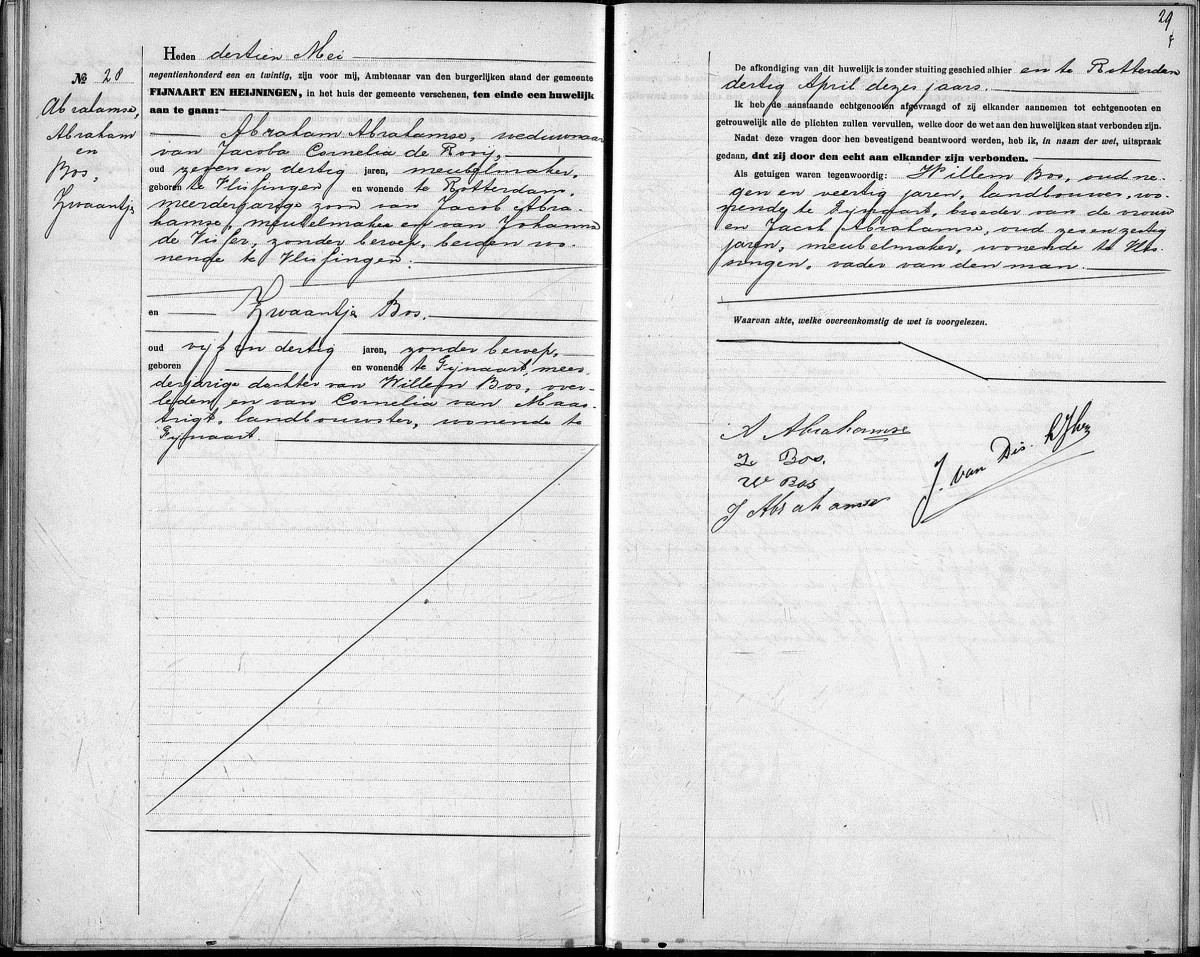 № 28
Abrahamse,
Abraham
en
Bos,
Zwaantje
Heden dertien Mei
negentienhonderd een en twintig, zijn voor mij, Ambtenaar van den burgerlijken stand der gemeente
FIJNAART EN HEIJNINGEN, in het huis der gemeente verschenen, ten einde een huwelijk
aan te gaan:
Abraham Abrahamse, weduwnaar
van Jacoba Cornelia de Rooij,
oud zeven en dertig jaren, meubelmaker,
geboren te Vlissingen en wonende te Rotterdam,
meerderjarige zoon van Jacob Abra-
hamse, meubelmaker en van Johanna
de Visser, zonder beroep, beiden wo-
nende te Vlissingen.
en Zwaantje Bos.
oud vijf en dertig jaren, zonder beroep,
geboren en wonende te Fijnaart, meer-
derjarige dochter van Willem Bos, over-
leden, en van Cornelia van Maas-
trigt, landbouwster, wonende te
Fijnaart.
29
De afkondiging van dit huwelijk is zonder stuiting geschied alhier en te Rotterdam
dertig April dezes jaars.
Ik heb de aanstaande echtgenooten afgevraagd of zij elkander aannemen tot echtgenooten en
getrouwelijk alle de plichten zullen vervullen, welke door de wet aan den huwelijken staat verbonden zijn.
Nadat deze vragen door hen bevestigend beantwoord werden, heb ik, in naam der wet, uitspraak
gedaan, dat zij door den echt aan elkander zijn verbonden.
Als getuigen waren tegenwoordig: Willem Bos, oud ne-
gen en veertig jaren, landbouwer, wo-
nende te Fijnaart, broeder van de vrouw
en Jacob Abrahamse, oud zes en zestig
jaren, meubelmaker, wonende te Vlis-
singen, vader van den man.
Waarvan akte, welke overeenkomstig de wet is voorgelezen.
A Abrahamse
Z. Bos.
W Bos
J Abrahamse
J. van Dis.